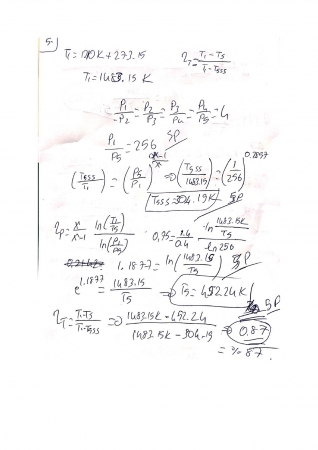 5-
T₁ = 1210K + 273.15   η_T = (T₁ - T₅)/(T₁ - T₅ₛₛₛ)
T₁ = 1483.15 K
P₁/P₂ = P₂/P₃ = P₃/P₄ = P₄/P₅ = 4
P₁/P₅ = 256   5P
(T₅ₛₛ/T₁) = (P₅/P₁)^((x-1)/x) => (T₅ₛₛ/1483.15) = (1/256)^0.2857
T₅ₛₛ = 304.19K   5P
η_p = x/(x-1) ln(T₁/T₅)/ln(P₁/P₅)   0,75 = 1.4/0.4 · ln(1483.15K/T₅)/ln 256
1.1877 = ln(1483.15/T₅)   5P
e^1.1877 = 1483.15/T₅ => T₅ = 452.24K   5P
η_T = (T₁-T₅)/(T₁-T₅ₛₛ) => (1483.15K - 452.24)/(1483.15K - 304.19) => 0.87   5P
= % 87.